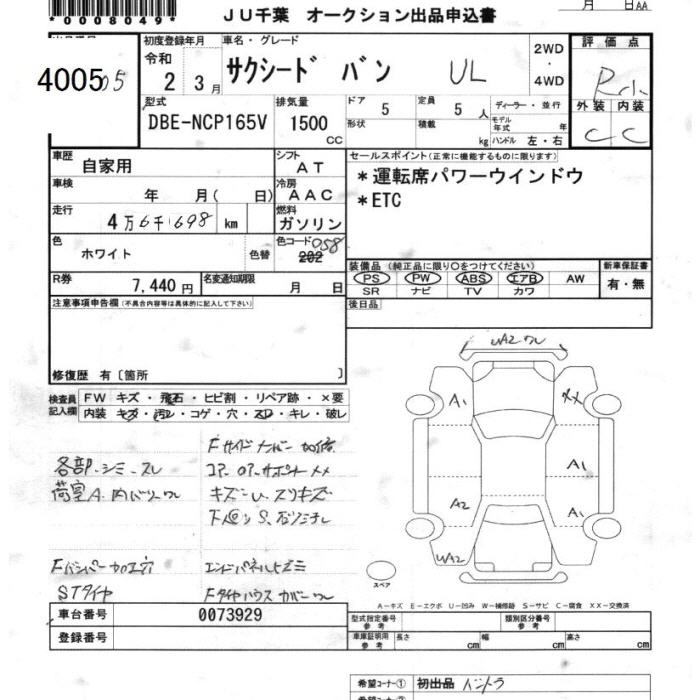 *0008049*
JU千葉 オークション出品申込書
月 日AA
出品番号 初度登録年月 車名・グレード 2WD・4WD 評価点
40055
令和 2 3月 サクシード バン UL
外装 内装
C C
型式 排気量 ドア 5 定員 5人 ディーラー・並行
DBE-NCP165V 1500 CC 形状 積載 kg モデル年式 年 ハンドル 左・右
車歴 自家用 シフト AT セールスポイント(正常に機能するものに限ります)
車検 年 月( 日) 冷房 AAC *運転席パワーウインドウ
走行 4万6千698 km 燃料 ガソリン *ETC
色 ホワイト 色替 色コード 202 058
R券 7,440円 名変通知期限 月 日
装備品(純正品に限り○をつけてください) 新車保証書
PS PW ABS エアB AW 有・無
SR ナビ TV カワ
注意事項申告欄(不具合内容等は具体的に記入して下さい) 後日品
修復歴 有〔箇所 〕
検査員記入欄 FW キズ・飛石・ヒビ割・リペア跡・×要
内装 キズ・汚レ・コゲ・穴・スレ・キレ・破レ
各部シミ・スレ
荷室A
キズ・U
Fバンパー加工穴 エンドパネルヒズミ
STタイヤ Fタイヤハウスカバーワレ
UA2 ワレ
A1 XX
A1
A2 A1
UA2
スペア
A-キズ E-エクボ U-凹み W-補修跡 S-サビ C-腐食 XX-交換済
車台番号 0073929
登録番号
型式指定番号 参考 類別区分番号 参考
車庫証明用 参考 長さ cm 幅 cm 高さ cm
希望コーナー① 初出品 バントラ
希望コーナー②